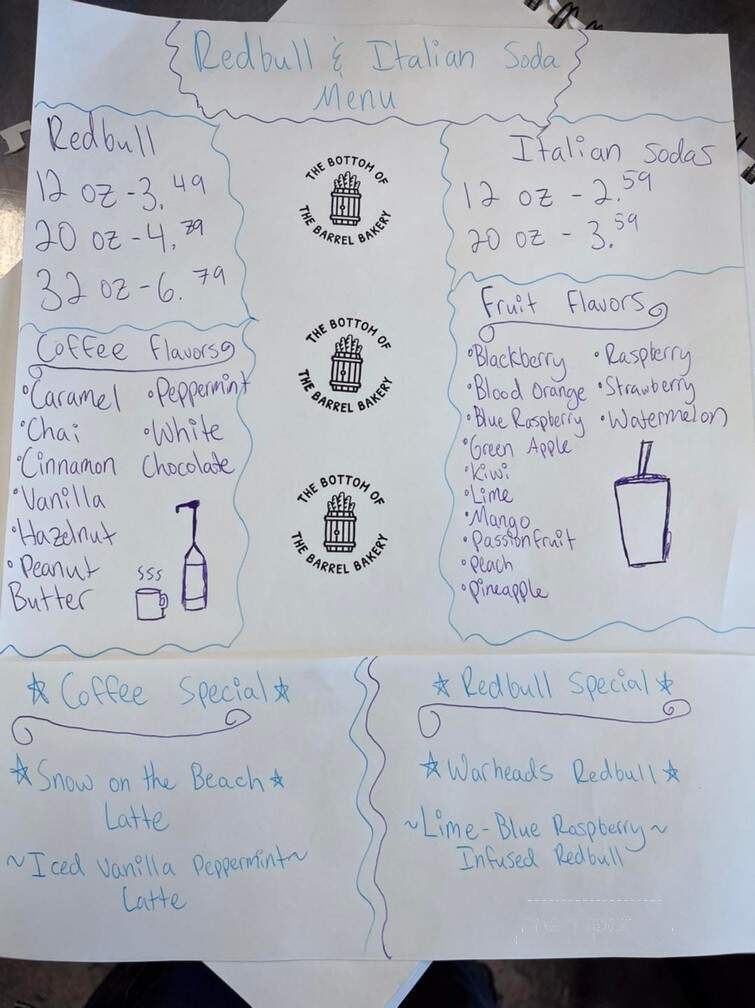 Redbull & Italian Soda
Menu
Redbull
12 oz - 3.49
20 oz - 4.79
32 oz - 6.79
Coffee Flavors
•Caramel •Peppermint
•Chai •White
•Cinnamon Chocolate
•Vanilla
•Hazelnut
•Peanut
Butter
sss
THE BOTTOM OF
THE BARREL BAKERY
THE BOTTOM OF
THE BARREL BAKERY
THE BOTTOM OF
THE BARREL BAKERY
Italian Sodas
12 oz - 2.59
20 oz - 3.59
Fruit Flavors
•Blackberry •Raspberry
•Blood Orange •Strawberry
•Blue Raspberry •Watermelon
•Green Apple
•Kiwi
•Lime
•Mango
•Passionfruit
•Peach
•Pineapple
☆ Coffee Special ☆
☆ Snow on the Beach ☆
Latte
~Iced Vanilla Peppermint~
Latte
☆ Redbull Special ☆
☆ Warheads Redbull ☆
~Lime-Blue Raspberry~
Infused Redbull